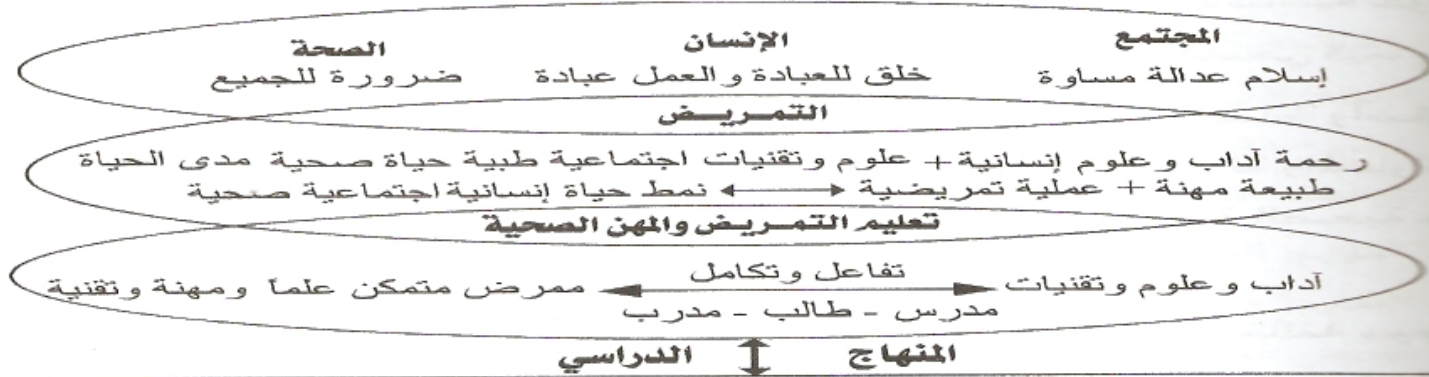 المجتمع الإنسان الصحة
إسلام عدالة مساوة خلق للعبادة و العمل عبادة ضرورة للجميع
التمريض
رحمة آداب و علوم إنسانية + علوم وتقنيات اجتماعية طبية حياة صحية مدى الحياة
طبيعة مهنة + عملية تمريضية نمط حياة إنسانية اجتماعية صحية
تعليم التمريض والمهن الصحية
تفاعل وتكامل
آداب وعلوم وتقنيات ممرض متمكن علماً ومهنة وتقنية
مدرس - طالب - مدرب
المنهاج الدراسي